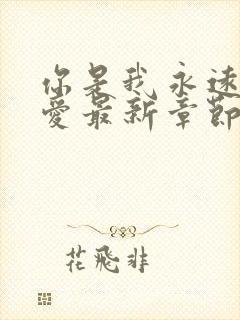 你是我永遠
愛最新章節
花飛非